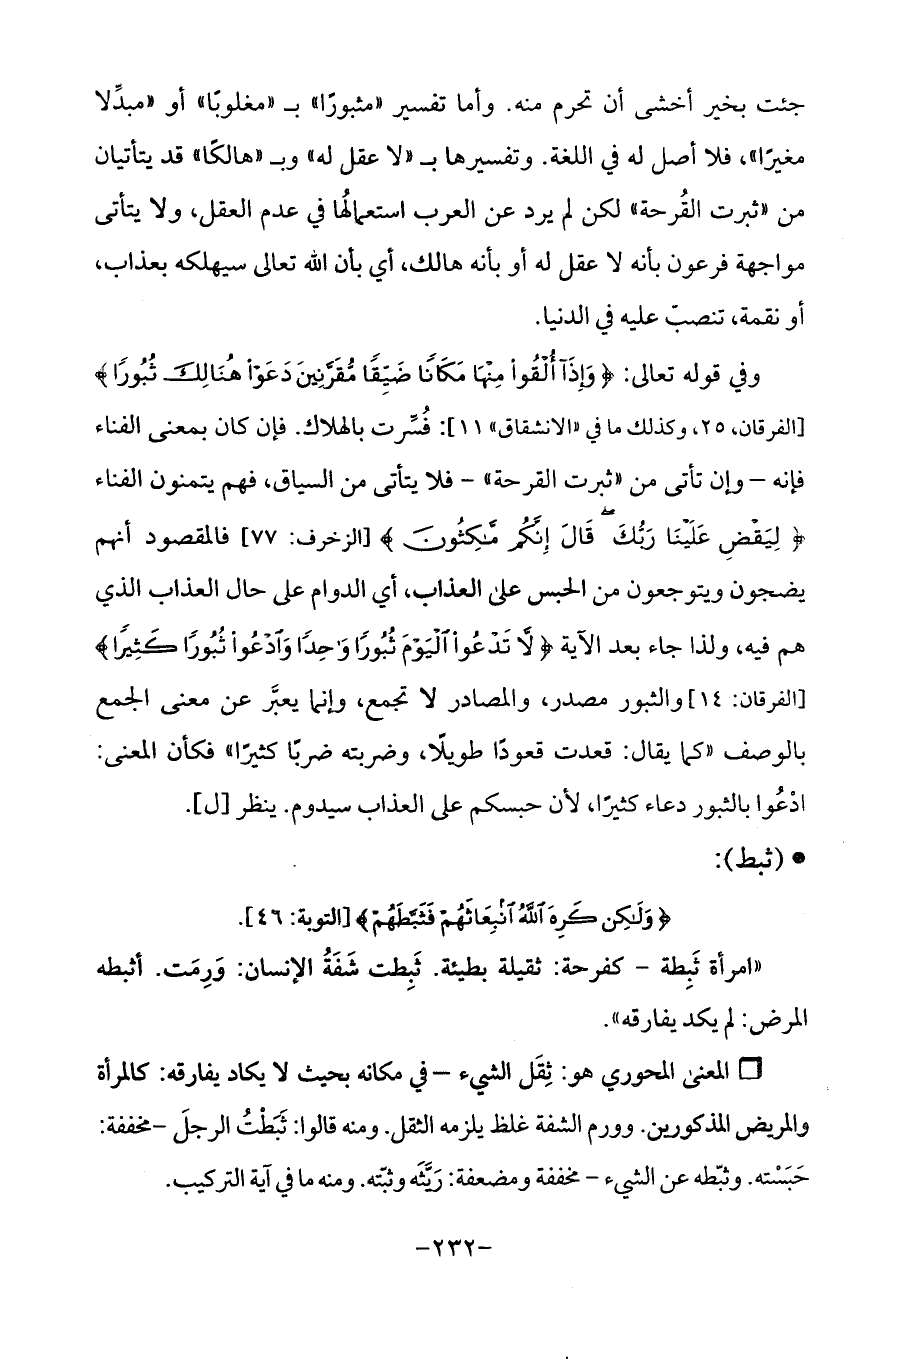 جئت بخير أخشى أن تحرم منه. وأما تفسير «مثبورًا» بـ «مغلوبًا» أو «مبدِّلا
مغيرًا»، فلا أصل له في اللغة. وتفسيرها بـ «لا عقل له» وبـ «هالكًا» قد يتأتيان
من «ثبرت القُرحة» لكن لم يرد عن العرب استعمالهُا في عدم العقل، ولا يتأتى
مواجهة فرعون بأنه لا عقل له أو بأنه هالك، أي بأن الله تعالى سيهلكه بعذاب،
أو نقمة، تنصبّ عليه في الدنيا.
وفي قوله تعالى: ﴿ وَإِذَآ أُلْقُوا۟ مِنْهَا مَكَانًا ضَيِّقًا مُّقَرَّنِينَ دَعَوْا۟ هُنَالِكَ ثُبُورًا ﴾
[الفرقان، ٢٥، وكذلك ما في «الانشقاق» ١١]: فُسِّرت بالهلاك. فإن كان بمعنى الفناء
فإنه – وإن تأتى من «ثبرت القرحة» – فلا يتأتى من السياق، فهم يتمنون الفناء
﴿ لِيَقْضِ عَلَيْنَا رَبُّكَ ۖ قَالَ إِنَّكُم مَّـٰكِثُونَ ﴾ [الزخرف: ٧٧] فالمقصود أنهم
يضجون ويتوجعون من الحبس على العذاب، أي الدوام على حال العذاب الذي
هم فيه، ولذا جاء بعد الآية ﴿ لَّا تَدْعُوا۟ ٱلْيَوْمَ ثُبُورًا وَٰحِدًا وَٱدْعُوا۟ ثُبُورًا كَثِيرًا ﴾
[الفرقان: ١٤] والثبور مصدر، والمصادر لا تجمع، وإنما يعبَّر عن معنى الجمع
بالوصف «كما يقال: قعدت قعودًا طويلًا، وضربته ضربًا كثيرًا» فكأن المعنى:
ادْعُوا بالثبور دعاء كثيرًا، لأن حبسكم على العذاب سيدوم. ينظر [ل].
• (ثبط):
﴿ وَلَـٰكِن كَرِهَ ٱللَّهُ ٱنۢبِعَاثَهُمْ فَثَبَّطَهُمْ ﴾ [التوبة: ٤٦].
«امرأة ثَبِطة – كفرحة: ثقيلة بطيئة. ثَبِطت شَفَةُ الإنسان: وَرِمَت. أثبطه
المرض: لم يكد يفارقه».
❒ المعنى المحوري هو: ثِقَل الشيء – في مكانه بحيث لا يكاد يفارقه: كالمرأة
والمريض المذكورين. وورم الشفة غلظ يلزمه الثقل. ومنه قالوا: ثَبَطْتُ الرجلَ – مخففة:
حَبَسْته. وثبّطه عن الشيء – مخففة ومضعفة: رَيَّثَه وثبّته. ومنه ما في آية التركيب.
–٢٣٢–